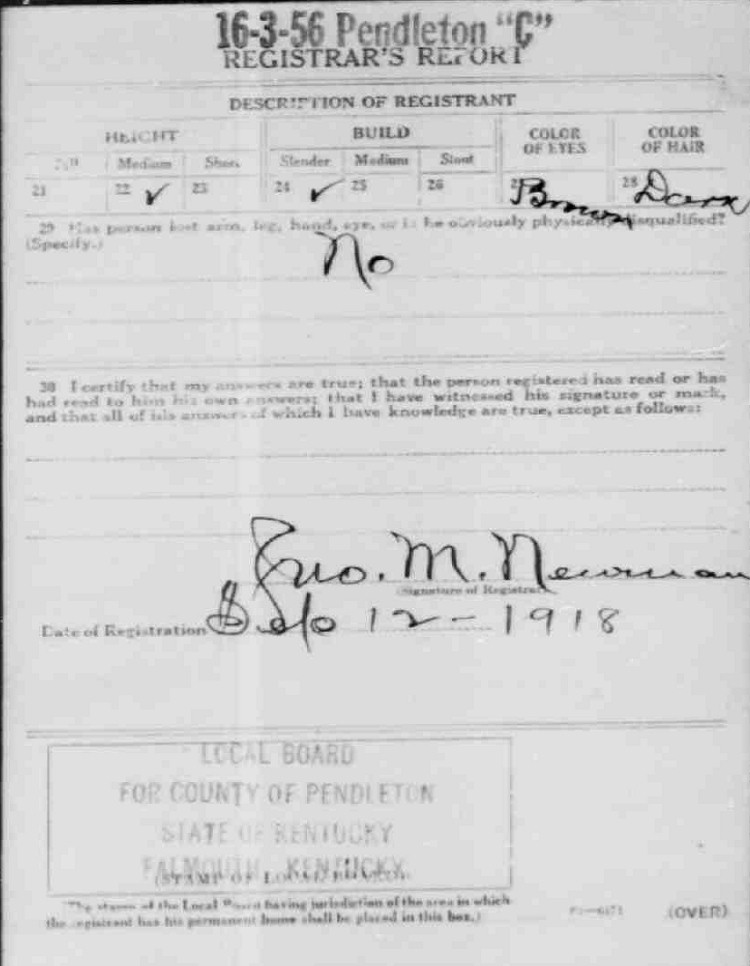 16-3-56 Pendleton "C"
REGISTRAR'S REPORT
DESCRIPTION OF REGISTRANT
HEIGHT BUILD COLOR OF EYES COLOR OF HAIR
Tall Medium Short Slender Medium Stout
21 22 ✓ 23 24 ✓ 25 26 27 Brown 28 Dark
29 Has person lost arm, leg, hand, eye, or is he obviously physically disqualified?
(Specify.)
No
30 I certify that my answers are true; that the person registered has read or has
had read to him his own answers; that I have witnessed his signature or mark,
and that all of his answers of which I have knowledge are true, except as follows:
Jno. M. Newman
(Signature of Registrar)
Date of Registration Sep 12 - 1918
LOCAL BOARD
FOR COUNTY OF PENDLETON
STATE OF KENTUCKY
FALMOUTH, KENTUCKY
(STAMP OF LOCAL BOARD)
(The stamp of the Local Board having jurisdiction of the area in which
the registrant has his permanent home shall be placed in this box.)
(OVER)